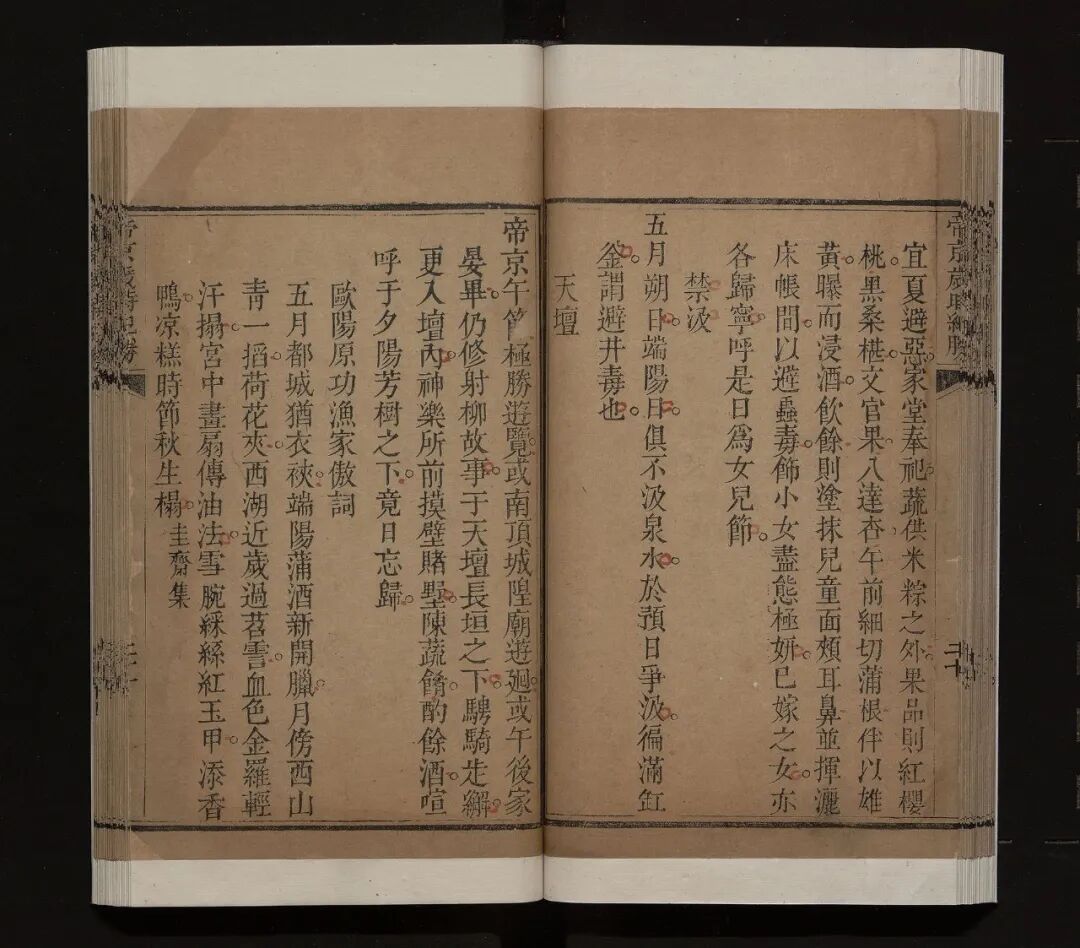 帝京歲時紀勝
宜夏避惡家堂奉祀蔬供米粽之外果品則紅櫻
桃黑桑椹文官果八達杏午前細切蒲根伴以雄
黃曝而浸酒飲餘則塗抹兒童面頰耳鼻並揮灑
床帳間以避蟲毒飾小女盡態極妍已嫁之女亦
各歸寧呼是日爲女兒節
禁汲
五月朔日端陽日俱不汲泉水於預日爭汲徧滿缸
釜謂避井毒也
天壇
帝京午節極勝遊覽或南頂城隍廟遊廻或午後家
晏畢仍修射柳故事于天壇長垣之下騁騎走繲
更入壇內神樂所前摸壁賭墅陳蔬餚酌餘酒喧
呼于夕陽芳樹之下竟日忘歸
歐陽原功漁家傲詞
五月都城猶衣裌端陽蒲酒新開臘月傍西山
青一搯荷花夾西湖近歲過苕霅血色金羅輕
汗搨宮中畫扇傳油法雪腕綵絲紅玉甲添香
鴨凉糕時節秋生榻 圭齋集
帝京歲時紀勝